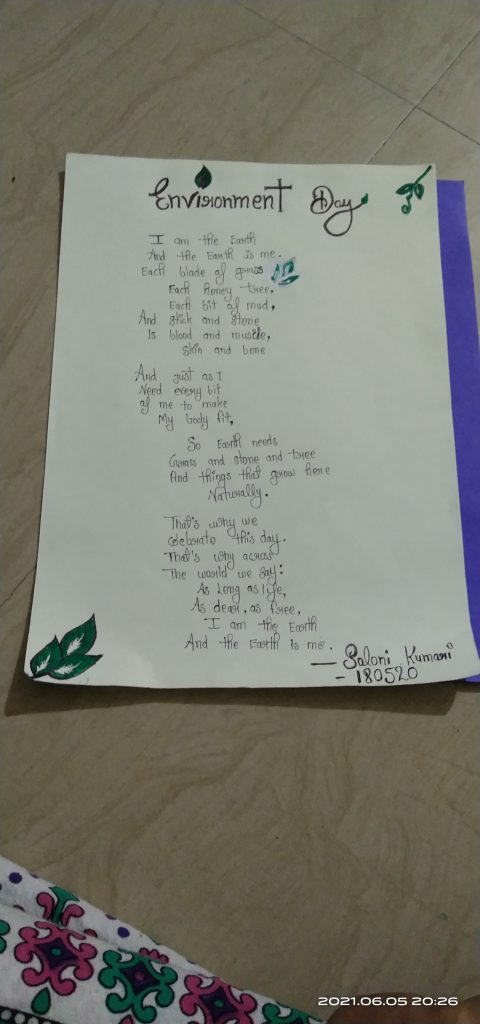 Environment Day
I am the Earth
And the Earth is me.
Each blade of grass
Each honey tree,
Each bit of mud,
And stick and stone
Is blood and muscle,
Skin and bone
And just as I
Need every bit
of me to make
My body fit,
So Earth needs
Grass and stone and tree
And things that grow here
Naturally.
That's why we
celebrate this day.
That's why across
The world we say:
As long as life,
As dear, as free,
I am the Earth
And the Earth is me.
— Saloni Kumari
- 180520
2021.06.05 20:26